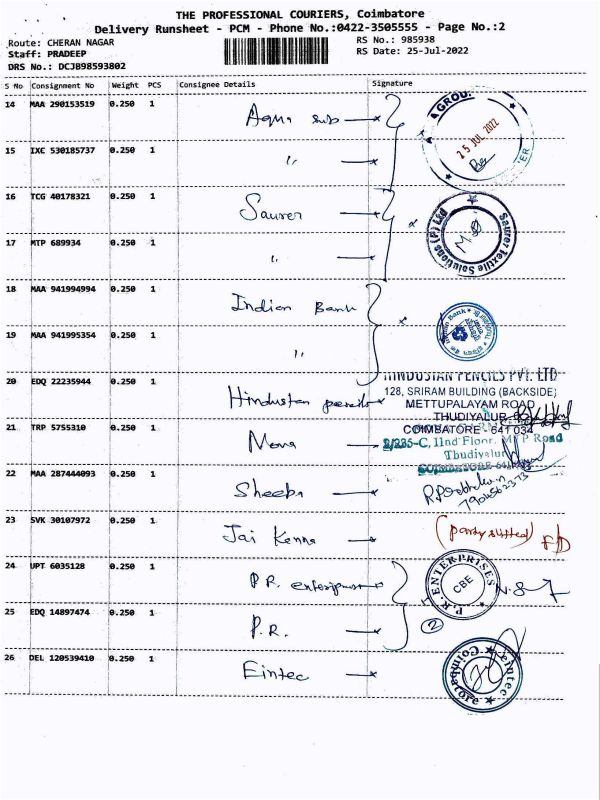 THE PROFESSIONAL COURIERS, Coimbatore
Delivery Runsheet - PCM - Phone No.:0422-3505555 - Page No.:2
Route: CHERAN NAGAR
RS No.: 985938
Staff: PRADEEP
RS Date: 25-Jul-2022
DRS No.: DCJB98593802
S No Consignment No Weight PCS Consignee Details Signature
14 MAA 290153519 0.250 1 Aqua sub
GROU
25 JUL 2022
15 IXC 530185737 0.250 1 "
16 TCG 40178321 0.250 1 Saurer
Saurer Textile Solutions (P) Ltd
17 MTP 689934 0.250 1 "
18 MAA 941994994 0.250 1 Indian Bank
Indian Bank
19 MAA 941995354 0.250 1 "
20 EDQ 22235944 0.250 1 Hindustan pencils
HINDUSTAN PENCILS PVT. LTD
128, SRIRAM BUILDING (BACKSIDE)
METTUPALAYAM ROAD
THUDIYALUR
COIMBATORE - 641 034
21 TRP 5755310 0.250 1 Mona
2/235-C, IInd Floor, MTP Road
Thudiyalur
COIMBATORE
22 MAA 287444093 0.250 1 Sheeba
7904562373
23 SVK 30107972 0.250 1 Jai Kenna
(party sifted)
24 UPT 6035128 0.250 1 P.R. enterprises
P.R. ENTERPRISES
CBE
25 EDQ 14897474 0.250 1 P.R.
2
26 DEL 120539410 0.250 1 Eintec
eintec Coimbatore